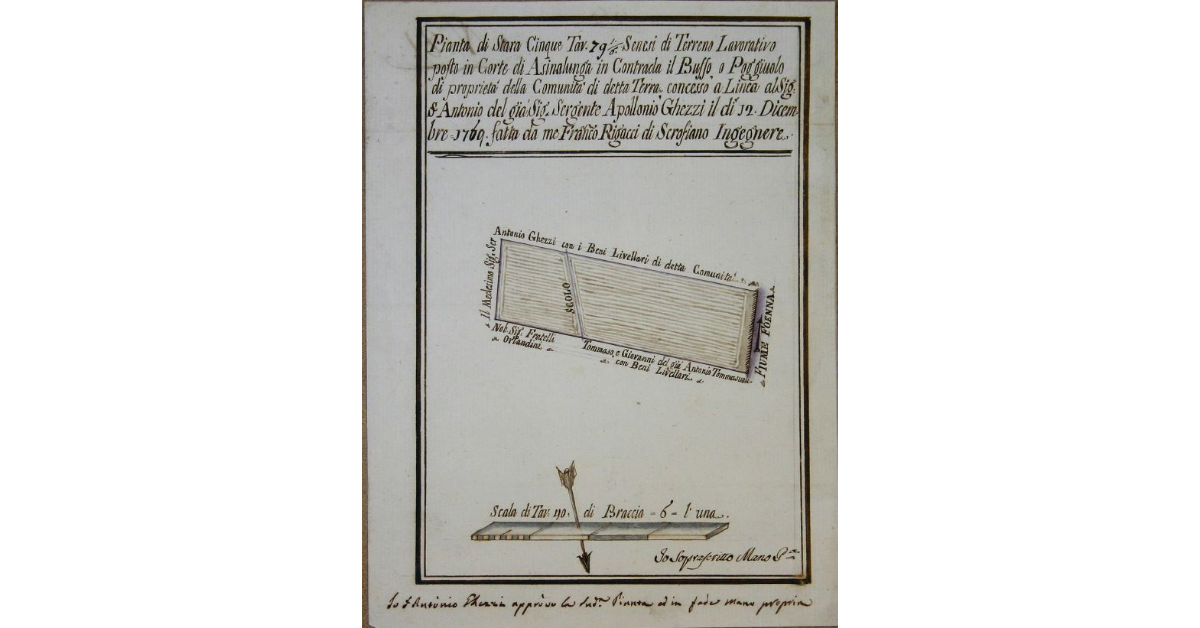 Pianta di Stara Cinque Tav. 79 1/6 Senesi di Terreno Lavorativo
posto in Corte di Asinalunga in Contrada il Busso o Poggiuolo
di proprietà della Comunità di detta Terra concesso à Linea al Sig.
Antonio del già Sig. Sergente Apollonio Ghezzi il dì 12. Dicem-
bre 1769. fatta da me Fran.co Rigacci di Scrofiano Ingegnere.
Antonio Ghezzi con i Beni Livellari di detta Comunita'.
Il Medezimo Sig. Ser
SCOLO
FIUME FOENNA
Nob. Sig. Fratelli
Orlandini
Tommaso, e Giovanni del già Antonio Tommasini
con Beni Livellari
Scala di Tav. no. di Braccia - 6 - l'una.
Io Soprascritto Mano P.a
Io Antonio Ghezzi approvo la Sud.a Pianta ed in fede mano propria